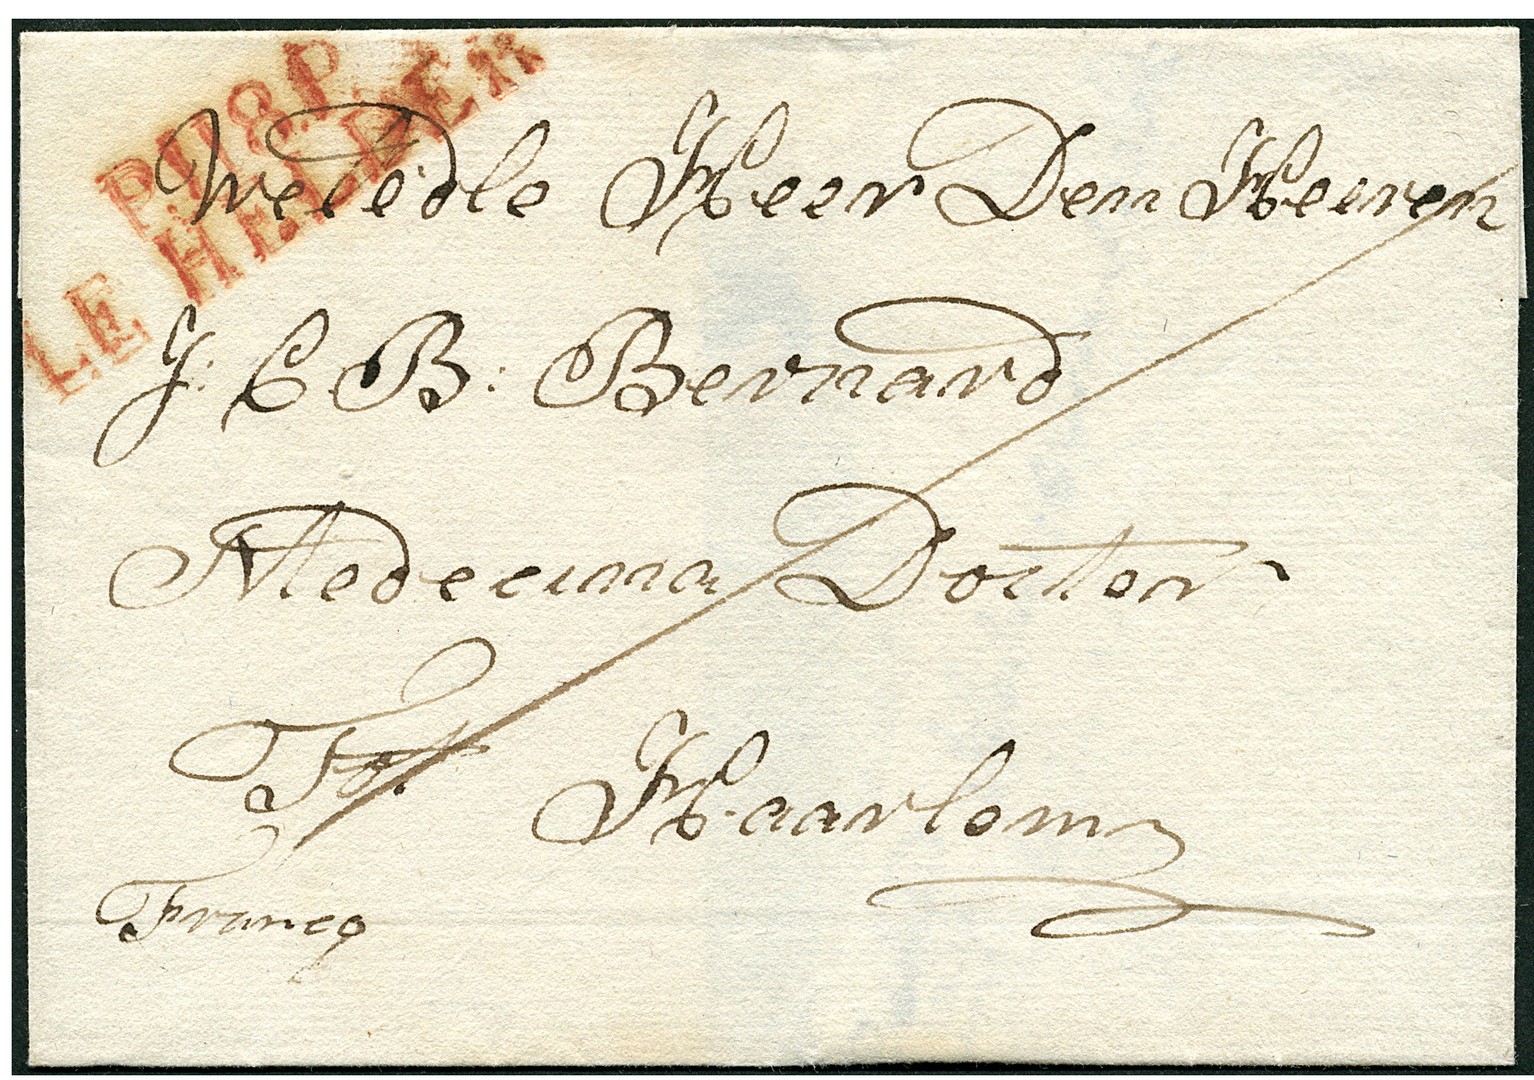 P.118.P.
LE HELDER
Weledle Heer Den Heeren
J: C B: Bernard
Medecina Docter
Tot Haarlem
Franco